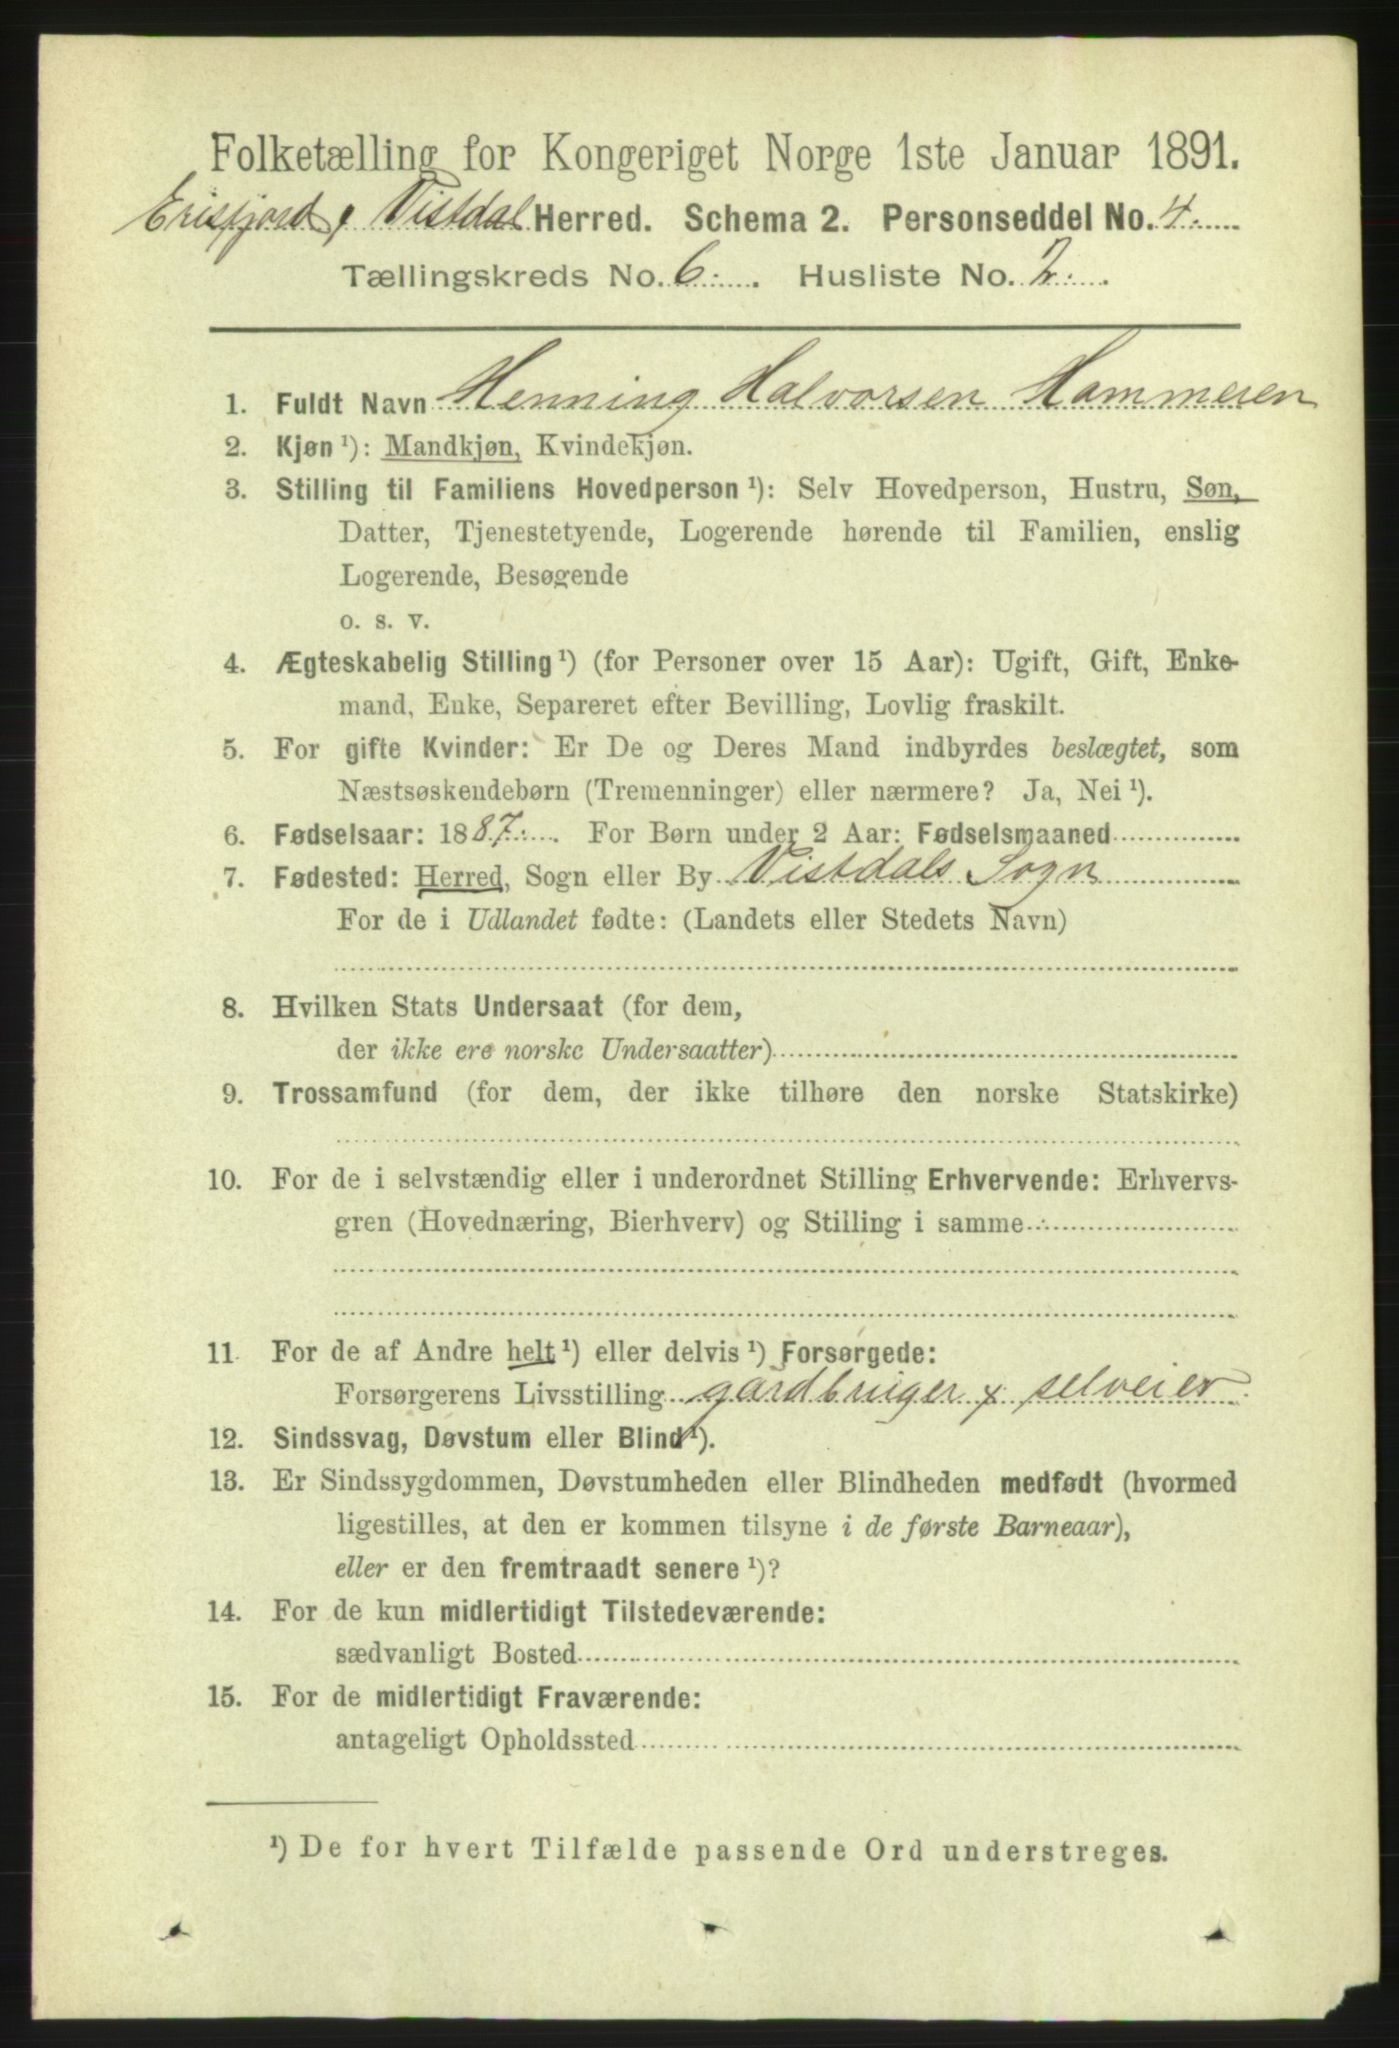 Folketælling for Kongeriget Norge 1ste Januar 1891.
Erisfjord & Vistdal Herred. Schema 2. Personseddel No. 4.
Tællingskreds No. 6. Husliste No. 2.
1. Fuldt Navn Henning Halvorsen Hammeren
2. Kjøn¹): Mandkjøn, Kvindekjøn.
3. Stilling til Familiens Hovedperson¹): Selv Hovedperson, Hustru, Søn,
Datter, Tjenestetyende, Logerende hørende til Familien, enslig
Logerende, Besøgende
o. s. v.
4. Ægteskabelig Stilling¹) (for Personer over 15 Aar): Ugift, Gift, Enke-
mand, Enke, Separeret efter Bevilling, Lovlig fraskilt.
5. For gifte Kvinder: Er De og Deres Mand indbyrdes beslægtet, som
Næstsøskendebørn (Tremenninger) eller nærmere? Ja, Nei¹).
6. Fødselsaar: 1887. For Børn under 2 Aar: Fødselsmaaned
7. Fødested: Herred, Sogn eller By Vistdals Sogn
For de i Udlandet fødte: (Landets eller Stedets Navn)
8. Hvilken Stats Undersaat (for dem,
der ikke ere norske Undersaatter)
9. Trossamfund (for dem, der ikke tilhøre den norske Statskirke)
10. For de i selvstændig eller i underordnet Stilling Erhvervende: Erhvervs-
gren (Hovednæring, Bierhverv) og Stilling i samme
11. For de af Andre helt¹) eller delvis¹) Forsørgede:
Forsørgerens Livsstilling gårdbruger & selveier
12. Sindssvag, Døvstum eller Blind¹).
13. Er Sindssygdommen, Døvstumheden eller Blindheden medfødt (hvormed
ligestilles, at den er kommen tilsyne i de første Barneaar),
eller er den fremtraadt senere¹)?
14. For de kun midlertidigt Tilstedeværende:
sædvanligt Bosted
15. For de midlertidigt Fraværende:
antageligt Opholdssted
¹) De for hvert Tilfælde passende Ord understreges.